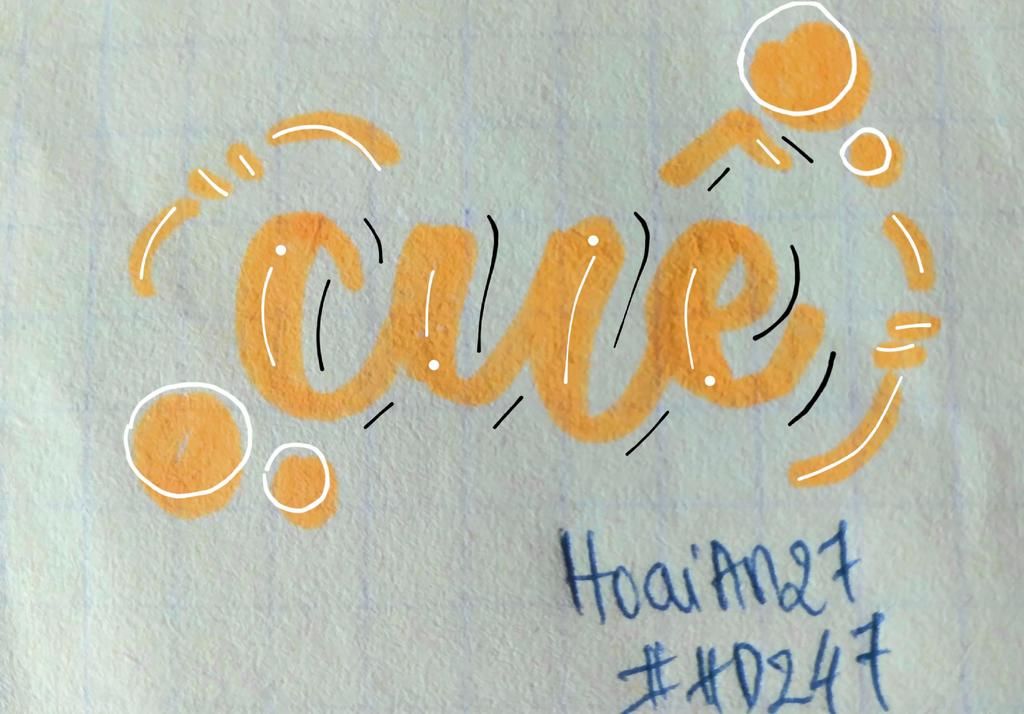 cuê
HoaiAn27
##D247